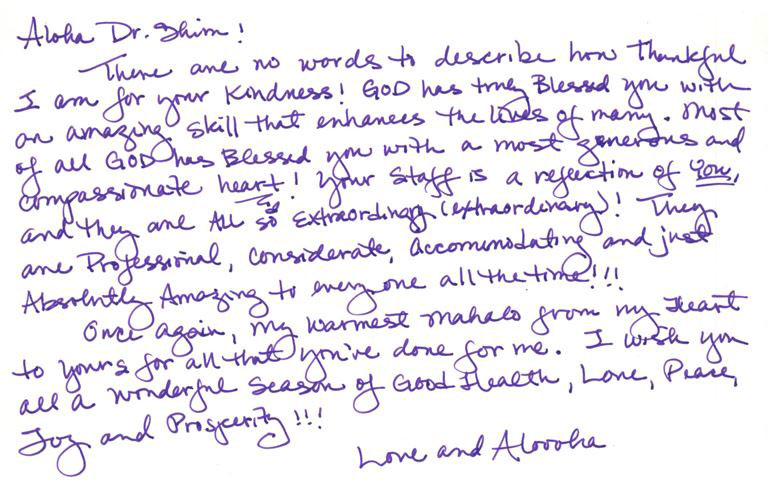 Aloha Dr. Shim!
There are no words to describe how thankful
I am for your kindness! GOD has truly Blessed you with
an amazing skill that enhances the lives of many. Most
of all GOD has Blessed you with a most generous and
compassionate heart! Your Staff is a reflection of You,
and they are All so Extraordinary (extraordinary)! They
are Professional, considerate, accommodating and just
Absolutely Amazing to everyone all the time!!!
Once again, my warmest mahalo from my Heart
to yours for all that you've done for me. I wish you
all a wonderful Season of Good Health, Love, Peace,
Joy and Prosperity!!!
Love and Alooha